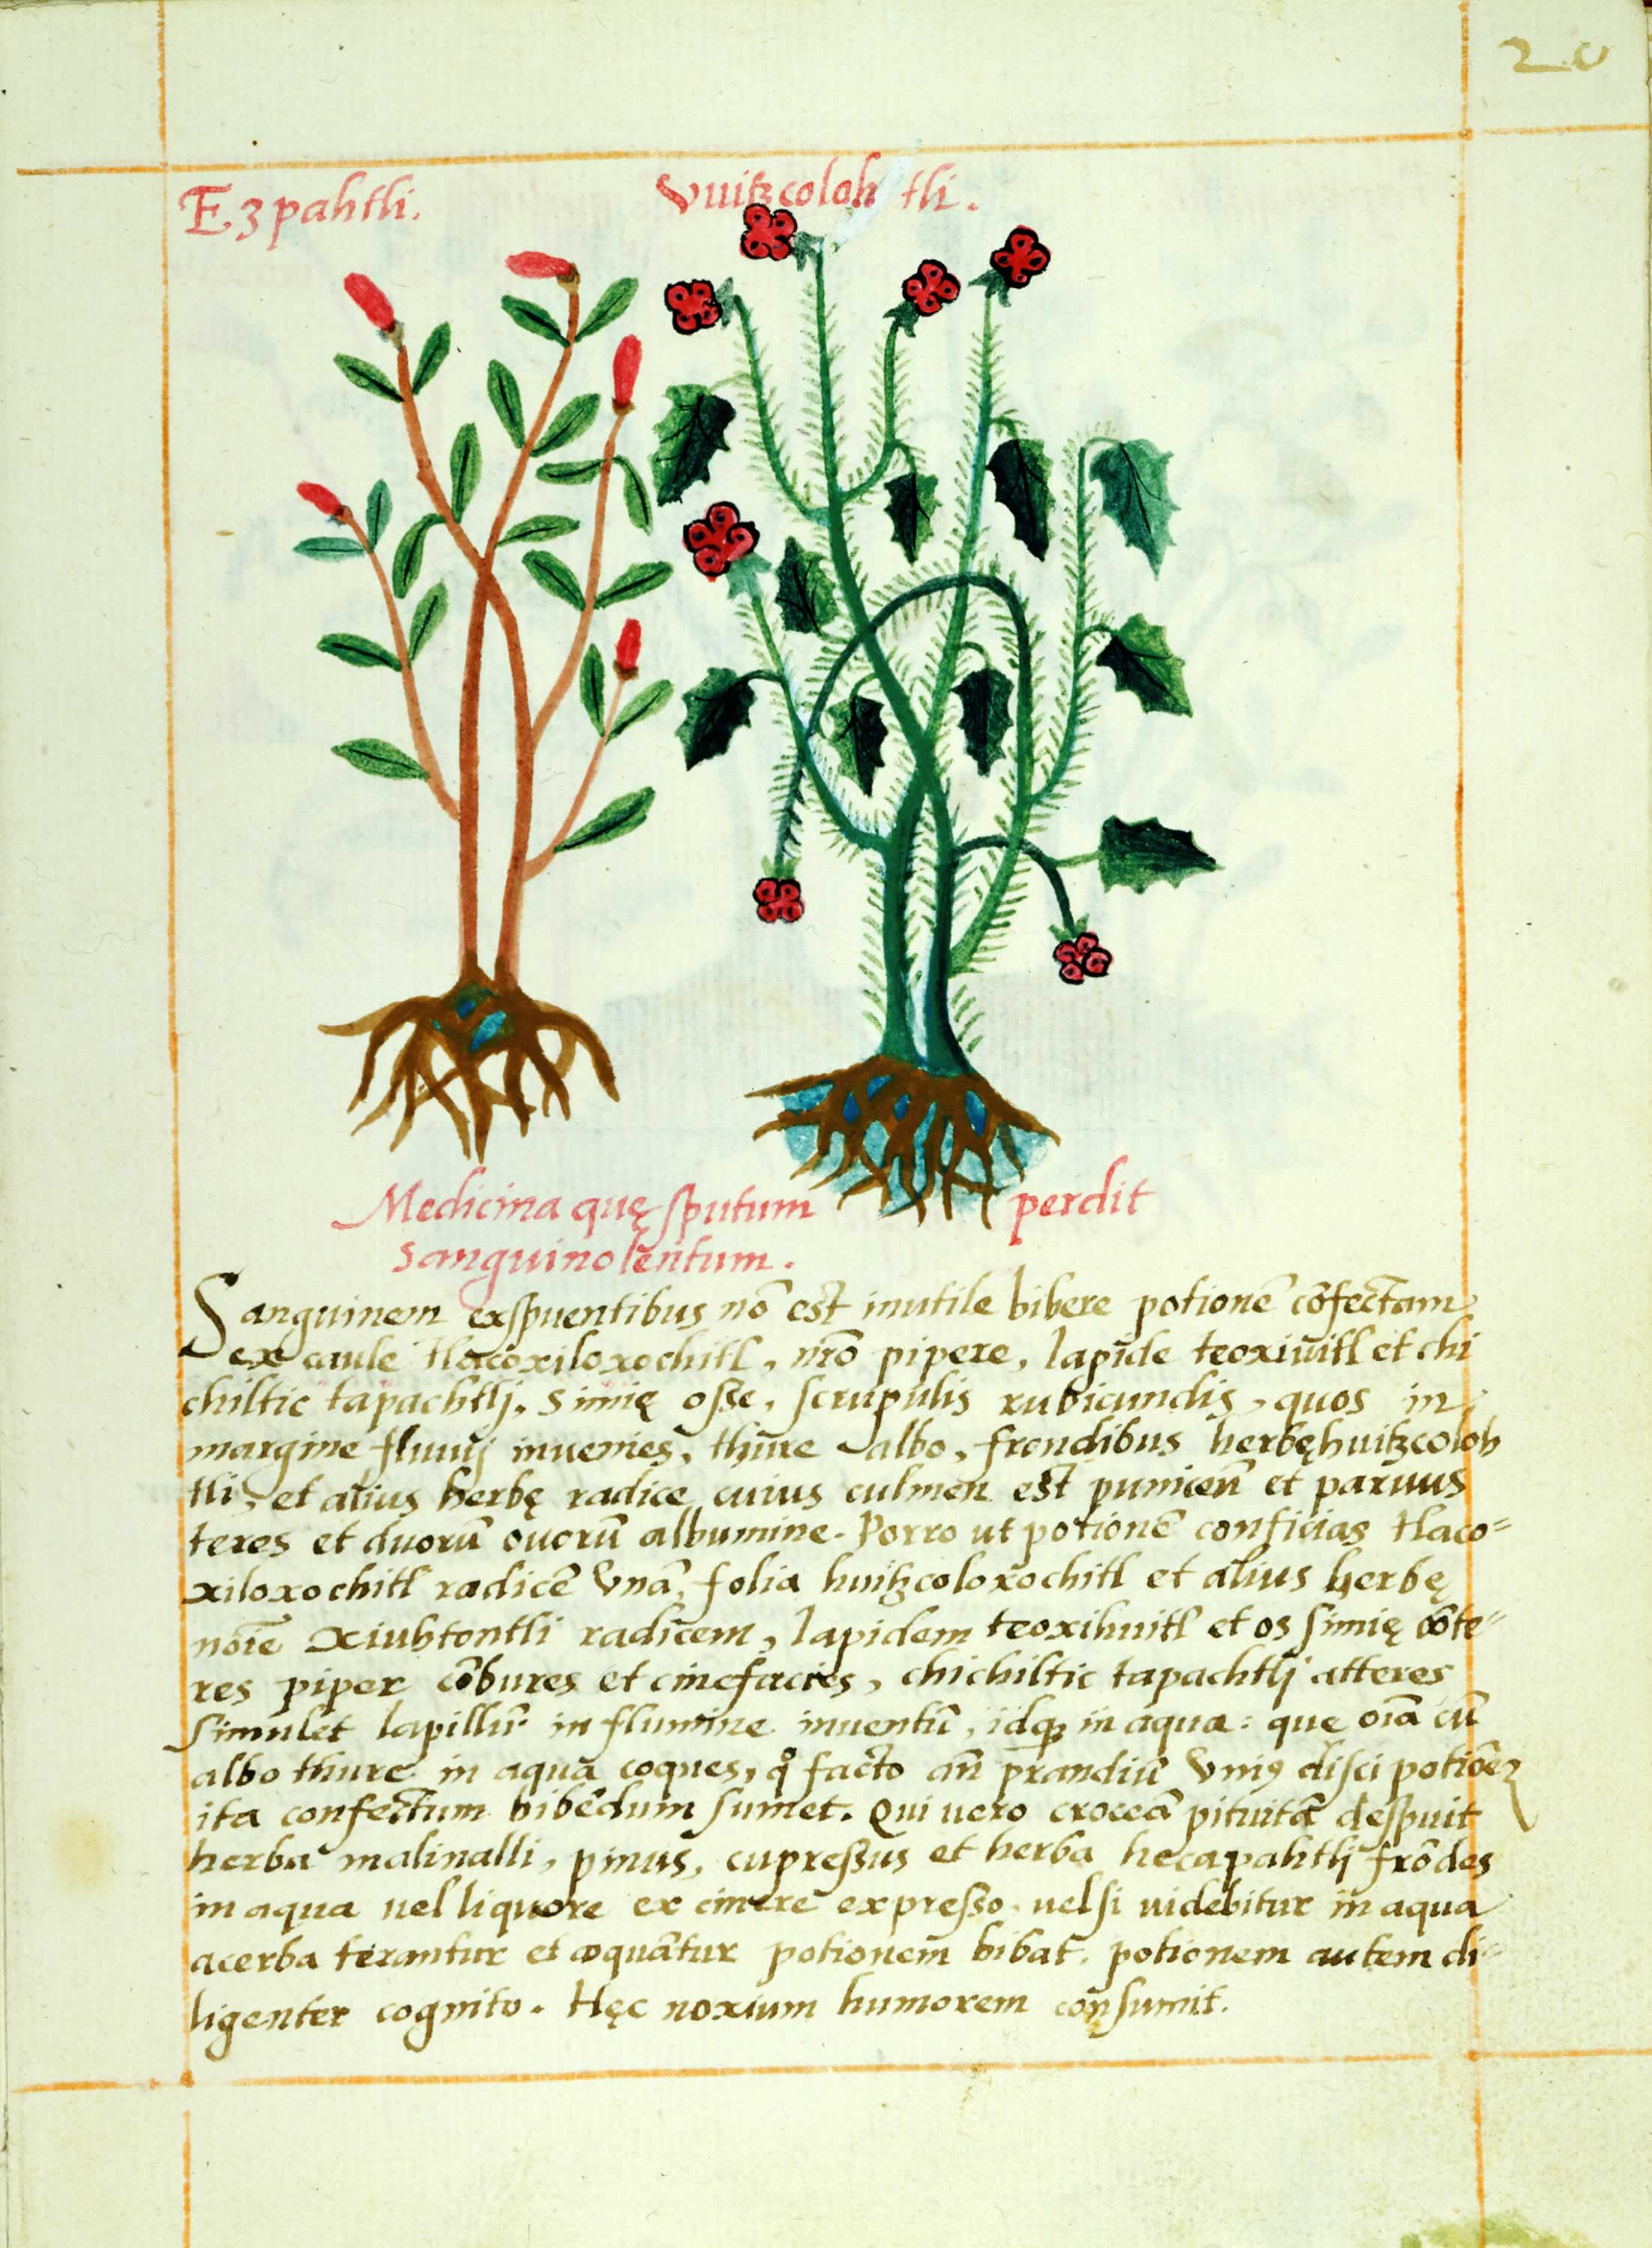 20
Ezpahtli. Vuitzcoloh tli.
Medicina quę sputum perdit
sanguinolentum.
Sanguinem exspuentibus nō est inutile bibere potionē cōfectam
ex caule tlacoxiloxochitl, nr̄o pipere, lapide teoxiuitl et chi
chiltic tapachtlj, simię osse, scrupulis rubicundis, quos in
margine fluuij inuenies, thure albo, frondibus herbę huitzcoloh
tli, et alius herbę radice cuius culmen est puniceū et paruus
teres et duorū ouorū albumine. Porro ut potionē conficias tlaco=
xiloxochitl radicē vnā, folia huitzcoloxochitl et alius herbę
noīe xiuhtontli radicem, lapidem teoxihuitl et os simię cōte=
res piper cōbures et cinefacies, chichiltic tapachtlj atteres
simulet lapillū in flumine inuentū, idq; in aqua: que oīa cū
albo thure in aqua coques, q̊ facto an̄ prandiū vniꝰ disci potiōe
ita confectum bibēdum sumet. Qui uero croceā pituitā despuit
herba malinalli, pinus, cupressus et herba hecapahtlj frōdes
in aqua uel liquore ex cinere expresso, uel si uidebitur in aqua
acerba terantur et coquātur potionem bibat, potionem autem di=
ligenter cognito. Hęc noxium humorem consumit.